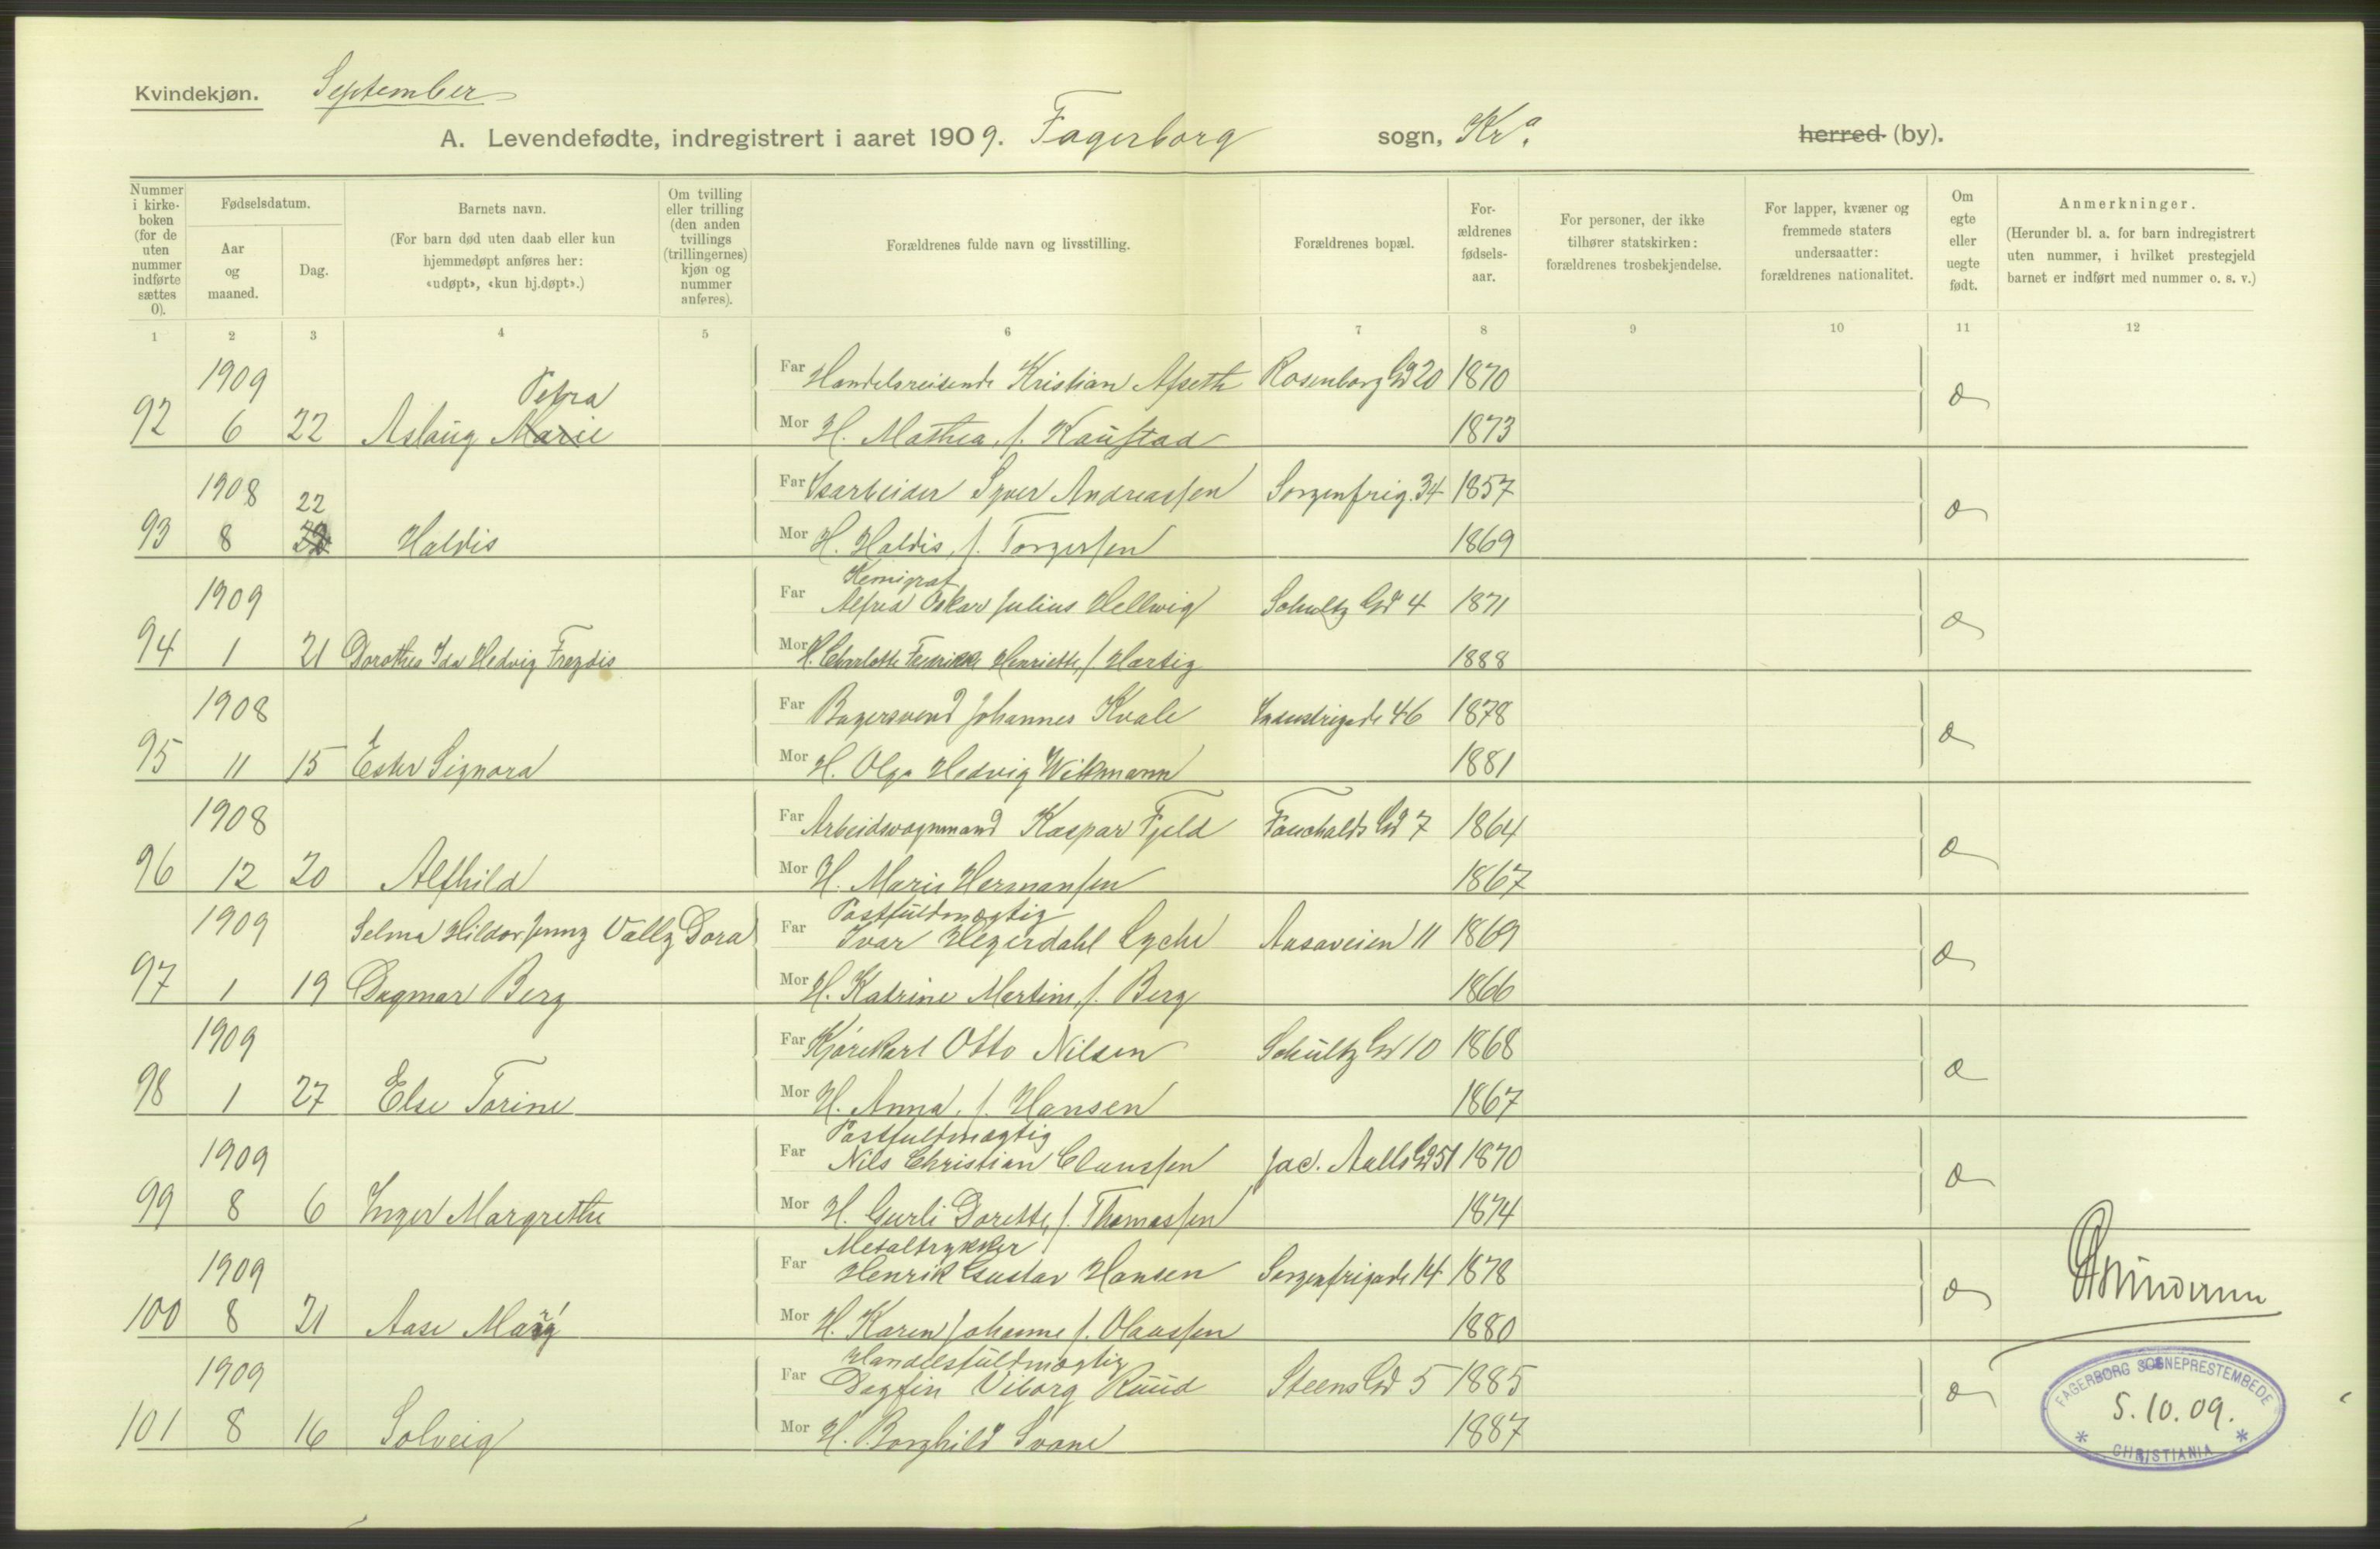 Kvindekjøn. September
A. Levendefødte, indregistrert i aaret 1909. Fagerborg sogn, Kra. herred (by).
Nummer i kirke-boken (for de uten nummer indførte sættes 0).
Fødselsdatum.
Aar og maaned.
Dag.
Barnets navn.
(For barn død uten daab eller kun hjemmedøpt anføres her: «udøpt», «kun hj.døpt».)
Om tvilling eller trilling (den anden tvillings (trillingernes) kjøn og nummer anføres).
Forældrenes fulde navn og livsstilling.
Forældrenes bopæl.
For-ældrenes fødsels-aar.
For personer, der ikke tilhører statskirken: forældrenes trosbekjendelse.
For lapper, kvæner og fremmede staters undersaatter: forældrenes nationalitet.
Om egte eller uegte født.
Anmerkninger.
(Herunder bl. a. for barn indregistrert uten nummer, i hvilket prestegjeld barnet er indført med nummer o. s. v.)
1 2 3 4 5 6 7 8 9 10 11 12
1909 Petra Far Handelsreisende Kristian Afseth Rosenborg Gd 20 1870
92 6 22 Aslaug Marie Mor H. Mathea, f. Kaustad 1873 æ
1908 22 Far Isarbeider Syver Andreassen Sorgenfrig. 34 1857
93 8 Haldis Mor H. Haldis, f. Torgersen 1869 æ
1909 Far Kemigraf
Alfred Oskar Julius Hellwig Schultz Gd 4 1871
94 1 21 Dorothea Ida Hedvig Frezdis Mor H. Charlotte Fredrikke Henriette, f. Hartig 1888 æ
1908 Far Bagersvend Johannes Kvale Industrigade 46 1878
95 11 15 Ester Signora Mor H. Olga Hedvig Wikmann 1881 æ
1908 Far Arbeidsvognmand Kaspar Fjeld Fauchalds Gd 7 1864
96 12 20 Alfhild Mor H. Marie Hermansen 1867 æ
1909 Selma Hildor Jenny Vally Dora Far Postfuldmægtig
Ivar Hegerdahl Lyche Aasaveien 11 1869
97 1 19 Dagmar Berg Mor H. Katrine Martine, f. Berg 1866 æ
1909 Far Kjørekarl Otto Nilsen Schultz Gd 10 1868
98 1 27 Else Torine Mor H. Anna, f. Hansen 1867 æ
1909 Far Postfuldmægtig
Nils Christian Claussen Jac. Aalls Gd 51 1870
99 8 6 Inger Margrethe Mor H. Gurli Dorette, f. Thomassen 1874 æ
1909 Far Metaltrykker
Henrik Gustav Hansen Sorgenfrigade 14 1878
100 8 21 Aase Mor H. Karen Johanne f. Olaussen 1880 æ
1909 Far Handelsfuldmægtig
Dagfin Viborg Ruud Steens Gd 5 1885
101 8 16 Solveig Mor H. Borghild Svane 1887 æ
FAGERBORG SOGNEPRESTEMBEDE
5.10.09.
* CHRISTIANIA *